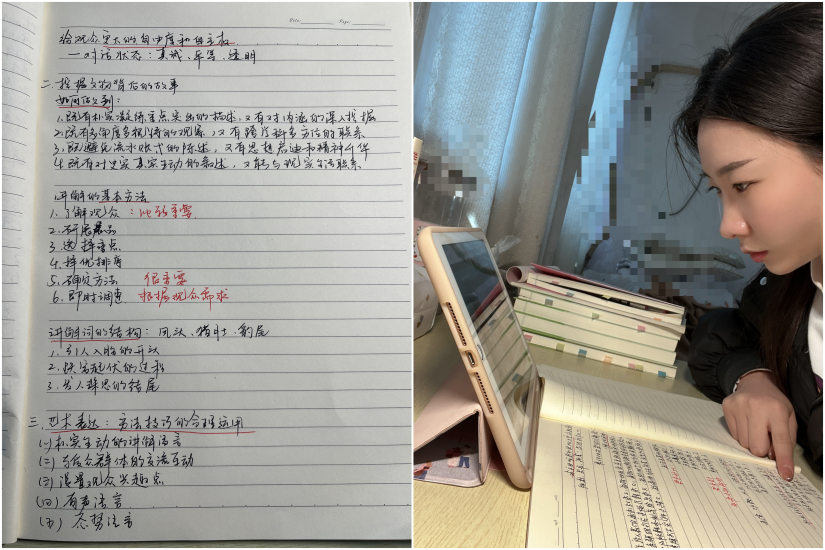 Date. Page.
给观众更大的自由度和自主权
—对话状态：真诚、平等、透明
二.挖掘文物背后的故事
如何做到：
1.既有朴实凝练重点突出的描述，又有对内涵的深入挖掘
2.既有多角度多视野的观察，又有跨学科多方位的联系
3.既避免流水账式的陈述，又有思想启迪和精神升华
4.既有对史实真实生动的叙述，又能与现实生活联系
讲解的基本方法
1.了解观众：比较重要
2.研展品
3.选择重点
4.择优排序
5.确定方法 很重要
6.即时调整 根据观众需求
讲解词的结构：凤头、猪肚、豹尾
1.引人入胜的开头
2.跌宕起伏的过程
3.发人深思的结尾
三.艺术表达：方法技巧的合理运用
(一)朴实生动的讲解语言
(二)与观众群体的交流互动
(三)设置观众兴趣点
(四)有声语言
(五)态势语言